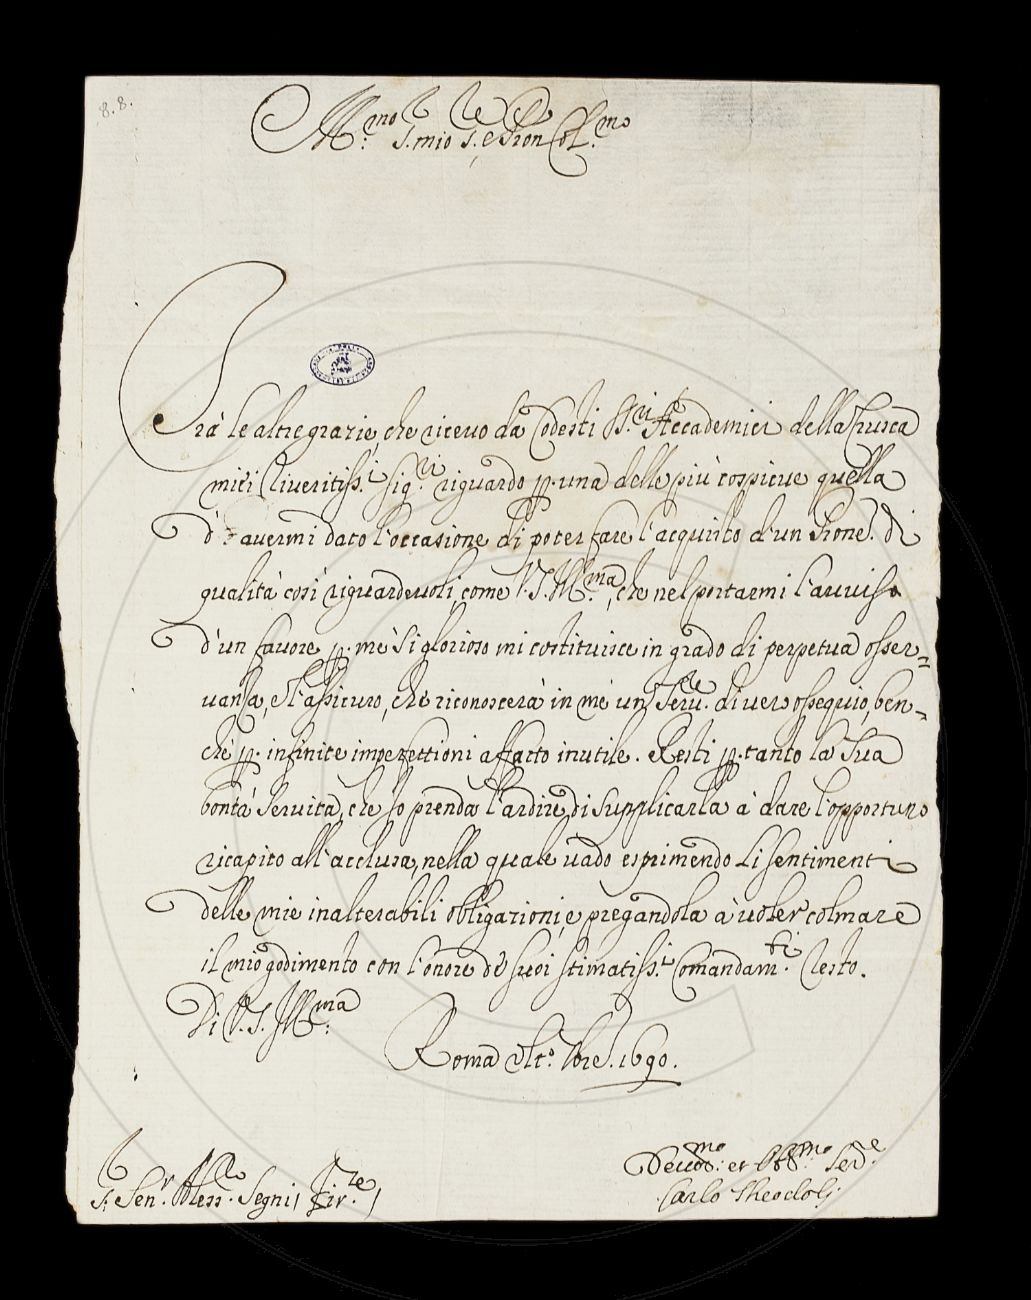 8. 8.
Ill.mo S.re mio S.re e Pron Col.mo
Frà le altre grazie, che ricevo da Codesti SS.ri Accademici della Crusca
miei riveritiss.i Sig.ri riguardo p. una delle più cospicue quella
d'avermi dato l'occasione di poter fare l'acquisto d'un Prone. di
qualità così riguardevoli, come V. S. Ill.ma, che nel portarmi l'avviso
d'un favore p. me sì glorioso mi costituisce in grado di perpetua osser=
vanza, e l'assicuro, che riconoscerà in me un Serv.re di vero ossequio, ben=
chè p. infinite imperfettioni affatto inutile. Resti p. tanto la Sua
bontà servita, che Io prenda l'ardire di supplicarla à dare l'opportuno
ricapito all'acclusa, nella quale vado esprimendo li sentimenti
delle mie inalterabili obligazioni, e pregandola à voler colmare
il mio godimento con l'onore de suoi stimatiss.i Comandam.ti resto.
Di V. S. Ill.ma
Roma 1690.
S.r Sen.r Aless.o Segni
Devot.mo et Obb.mo Ser.e
Carlo Theodoli